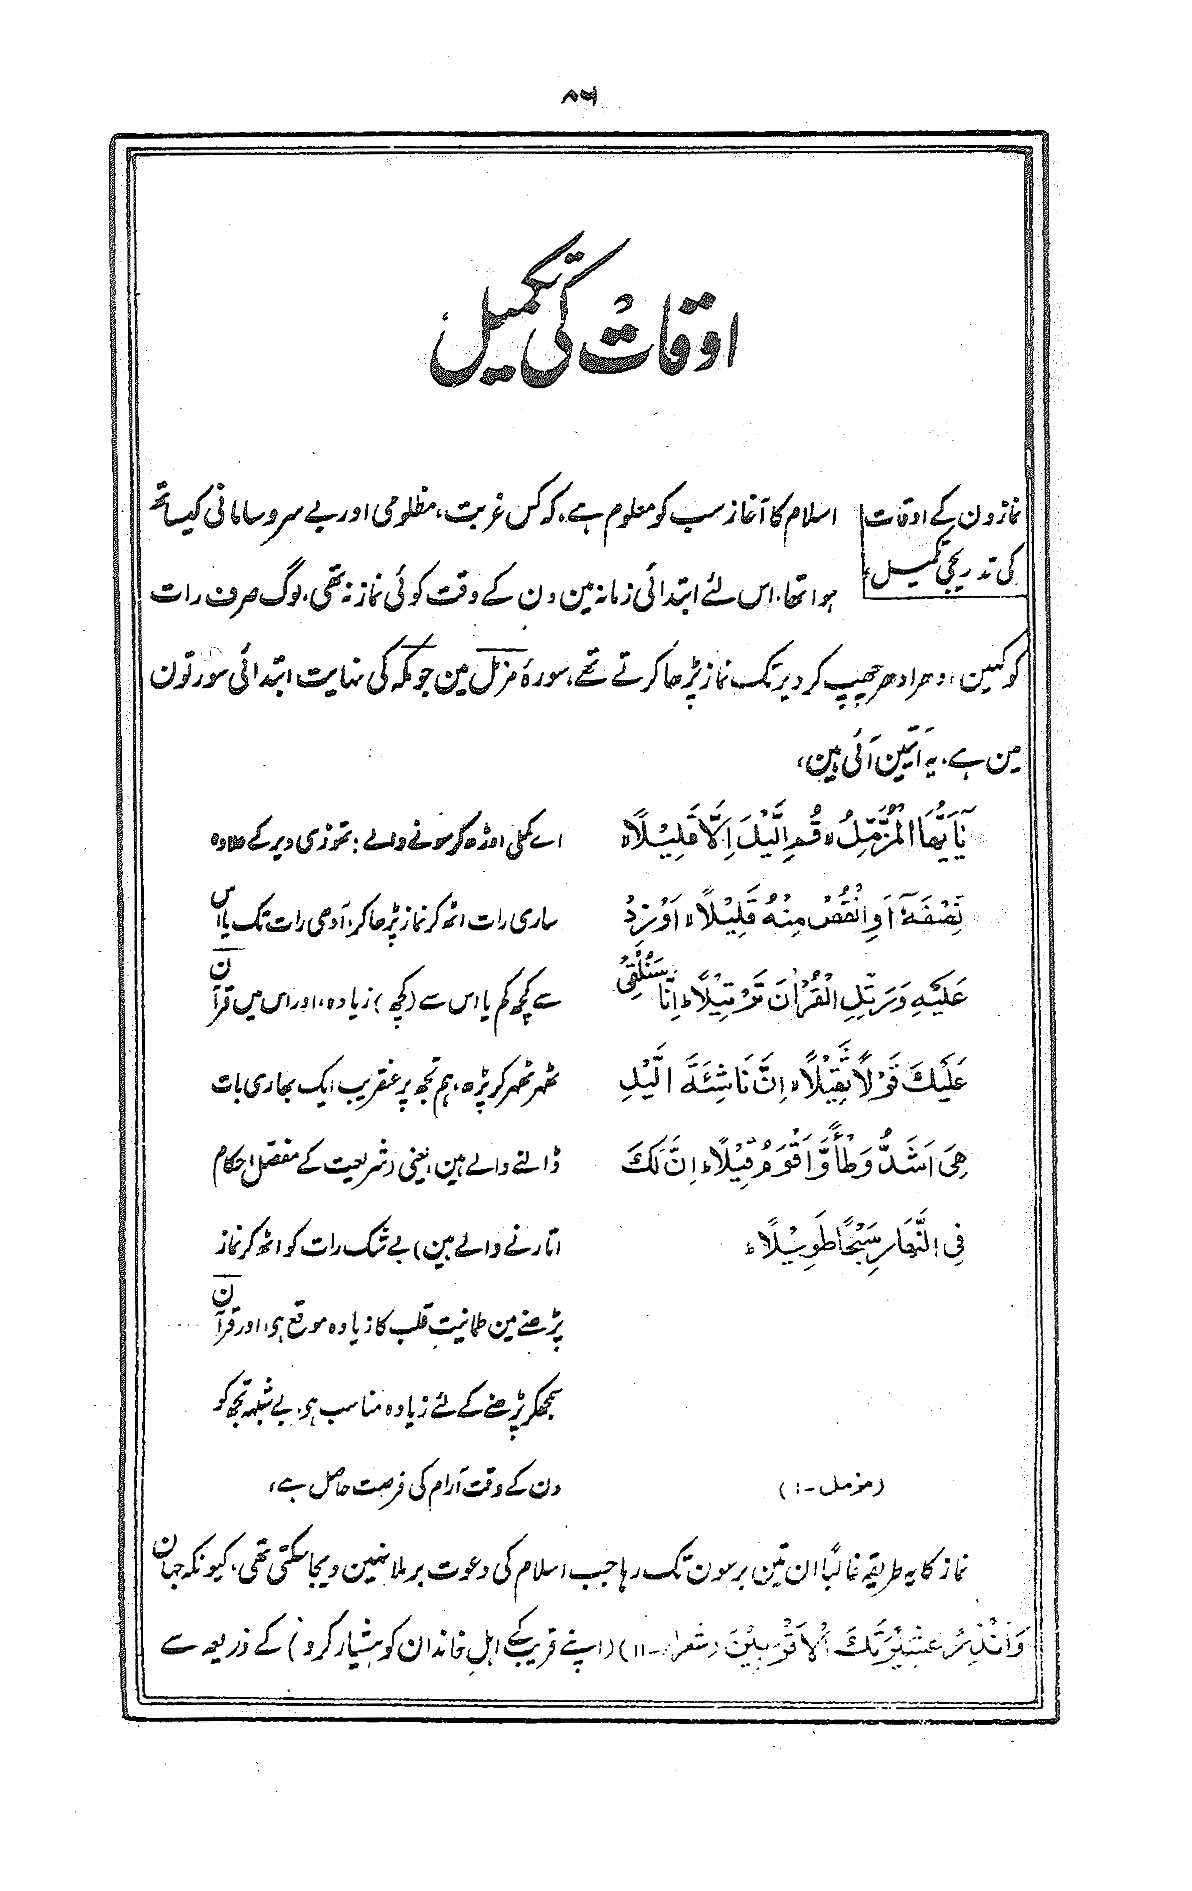 ۸۶
اوقات کی تکمیل
نمازون کے اوقات
کی تدریجی تکمیل،
اسلام کا آغاز سب کو معلوم ہے، کہ کس غربت، مظلومی اور بے سروسامانی کیساتھ
ہوا تھا، اس لئے ابتدائی زمانہ مین دن کے وقت کوئی نماز نہ تھی، لوگ صرف رات
کو کہین ادھر ادھر چھپ کر دیر تک نماز پڑھا کرتے تھے، سورۂ مزمل مین جو مکہ کی نہایت ابتدائی سورتون
مین ہے، یہ آیتین آئی ہین،
يٰٓاَيُّهَا الْمُزَّمِّلُ ہ قُمِ الَّيْلَ اِلَّا قَلِيْلًا ہ
نِّصْفَهٗٓ اَوِ انْقُصْ مِنْهُ قَلِيْلًا ہ اَوْ زِدْ
عَلَيْهِ وَرَتِّلِ الْقُرْاٰنَ تَرْتِيْلًا ہ اِنَّا سَنُلْقِيْ
عَلَيْكَ قَوْلًا ثَقِيْلًا ہ اِنَّ نَاشِئَةَ الَّيْلِ
هِيَ اَشَدُّ وَطْأً وَّ اَقْوَمُ قِيْلًا ہ اِنَّ لَكَ
فِي النَّهَارِ سَبْحًا طَوِيْلًا ہ
(مزمل - ۱)
اے کملی اوڑھ کر سونے والے! تھوڑی دیر کے علاوہ
ساری رات اٹھ کر نماز پڑھا کر، آدھی رات تک یا اس
سے کچھ کم یا اس سے (کچھ) زیادہ، اور اس میں قرآن
ٹھہر ٹھہر کر پڑھ، ہم تجھ پر عنقریب ایک بھاری بات
ڈالنے والے ہین، یعنی (شریعت کے مفصل احکام
اتارنے والے ہین) بے شک رات کو اٹھ کر نماز
پڑھنے مین طمانیت قلب کا زیادہ موقع ہی، اور قرآن
سمجھکر پڑھنے کے لئے زیادہ مناسب ہی، بے شبہہ تجھ کو
دن کے وقت آرام کی فرصت حاصل ہے،
نماز کا یہ طریقہ غالبًا ان تین برسون تک رہا جب اسلام کی دعوت برملا نہین دیجا سکتی تھی، کیونکہ جہان
وَاَنْذِرْ عَشِيْرَتَكَ الْاَقْرَبِيْنَ (شعراء - ۱۱) (اپنے قریب کے اہل خاندان کو ہشیار کرو) کے ذریعہ سے